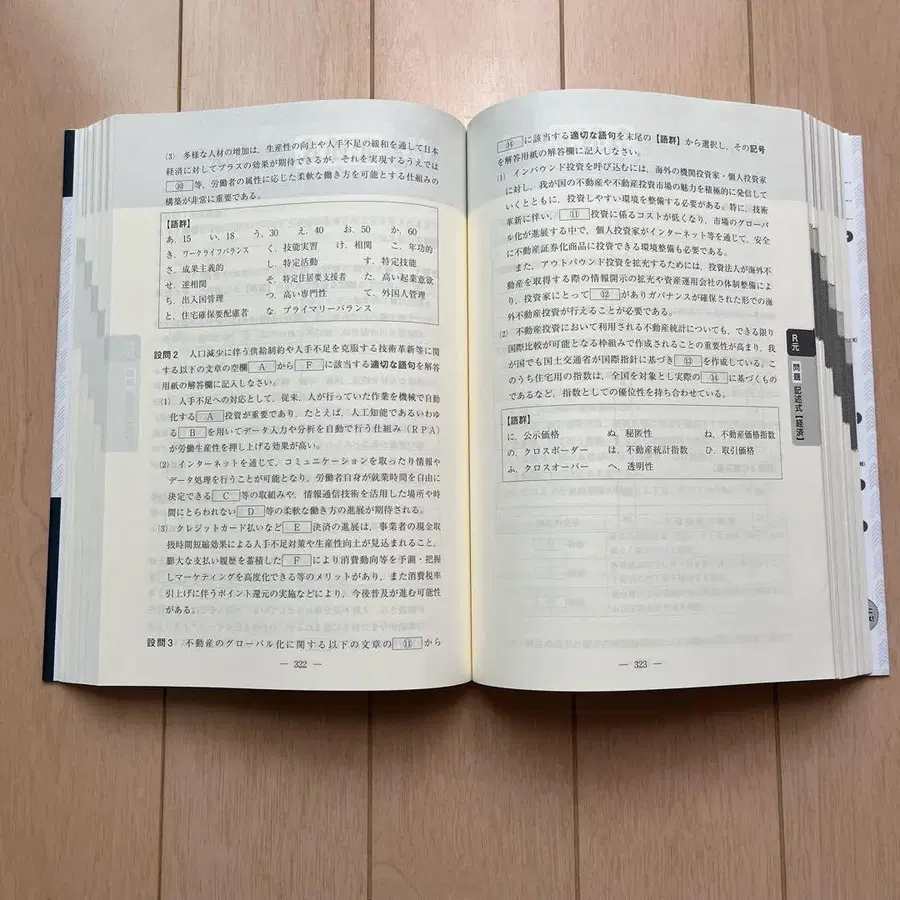 (3) 多様な人材の増加は、生産性の向上や人手不足の緩和を通して日本
経済に対してプラスの効果が期待できるが、それを実現するうえでは
⑩等、労働者の属性に応じた柔軟な働き方を可能とする仕組みの
構築が非常に重要である。
【語群】
あ. 15 い. 18 う. 30 え. 40 お. 50 か. 60
き. ワークライフバランス く. 技能実習 け. 相関 こ. 年功的
さ. 成果主義的 し. 特定活動 す. 特定技能
せ. 逆相関 そ. 特定居住要支援者 た. 高い起業意欲
ち. 出入国管理 つ. 高い専門性 て. 外国人管理
と. 住宅確保要配慮者 な. プライマリーバランス
設問2 人口減少に伴う供給制約や人手不足を克服する技術革新等に関
する以下の文章の空欄 A から F に該当する適切な語句を解答
用紙の解答欄に記入しなさい。
(1) 人手不足への対応として、従来、人が行っていた作業を機械で自動
化する A 投資が重要であり、たとえば、人工知能であるいわゆ
る B を用いてデータ入力や分析を自動で行う仕組み(RPA)
が労働生産性を押し上げる効果が高い。
(2) インターネットを通じて、コミュニケーションを取ったり情報や
データ処理を行うことが可能となり、労働者自身が就業時間を自由に
決定できる C 等の取組みや、情報通信技術を活用した場所や時
間にとらわれない D 等の柔軟な働き方の進展が期待される。
(3) クレジットカード払いなど E 決済の進展は、事業者の現金取
扱時間短縮効果による人手不足対策や生産性向上が見込まれること、
膨大な支払い履歴を蓄積した F により消費動向等を予測・把握
しマーケティングを高度化できる等のメリットがあり、また消費税率
引上げに伴うポイント還元の実施などにより、今後普及が進む可能性
がある。
設問3 不動産のグローバル化に関する以下の文章の ⑪ から
― 322 ―
⑭ に該当する適切な語句を末尾の【語群】から選択し、その記号
を解答用紙の解答欄に記入しなさい。
(1) インバウンド投資を呼び込むには、海外の機関投資家・個人投資家
に対し、我が国の不動産や不動産投資市場の魅力を積極的に発信して
いくとともに、投資しやすい環境を整備する必要がある。特に、技術
革新に伴い、⑪ 投資に係るコストが低くなり、市場のグローバ
ル化が進展する中で、個人投資家がインターネット等を通じて、安全
に不動産証券化商品に投資できる環境整備も必要である。
また、アウトバウンド投資を拡充するためには、投資法人が海外不
動産を取得する際の情報開示の拡充や資産運用会社の体制整備によ
り、投資家にとって ⑫ がありガバナンスが確保された形での海
外不動産投資が行えることが必要である。
(2) 不動産投資において利用される不動産統計についても、できる限り
国際比較が可能となる枠組みで作成されることの重要性が高まり、我
が国でも国土交通省が国際指針に基づき ⑬ を作成している。こ
のうち住宅用の指数は、全国を対象とし実際の ⑭ に基づくもの
であるなど、指数としての優位性を持ち合わせている。
【語群】
に. 公示価格 ぬ. 秘匿性 ね. 不動産価格指数
の. クロスボーダー は. 不動産統計指数 ひ. 取引価格
ふ. クロスオーバー へ. 透明性
― 323 ―
R元
問題 記述式【経済】